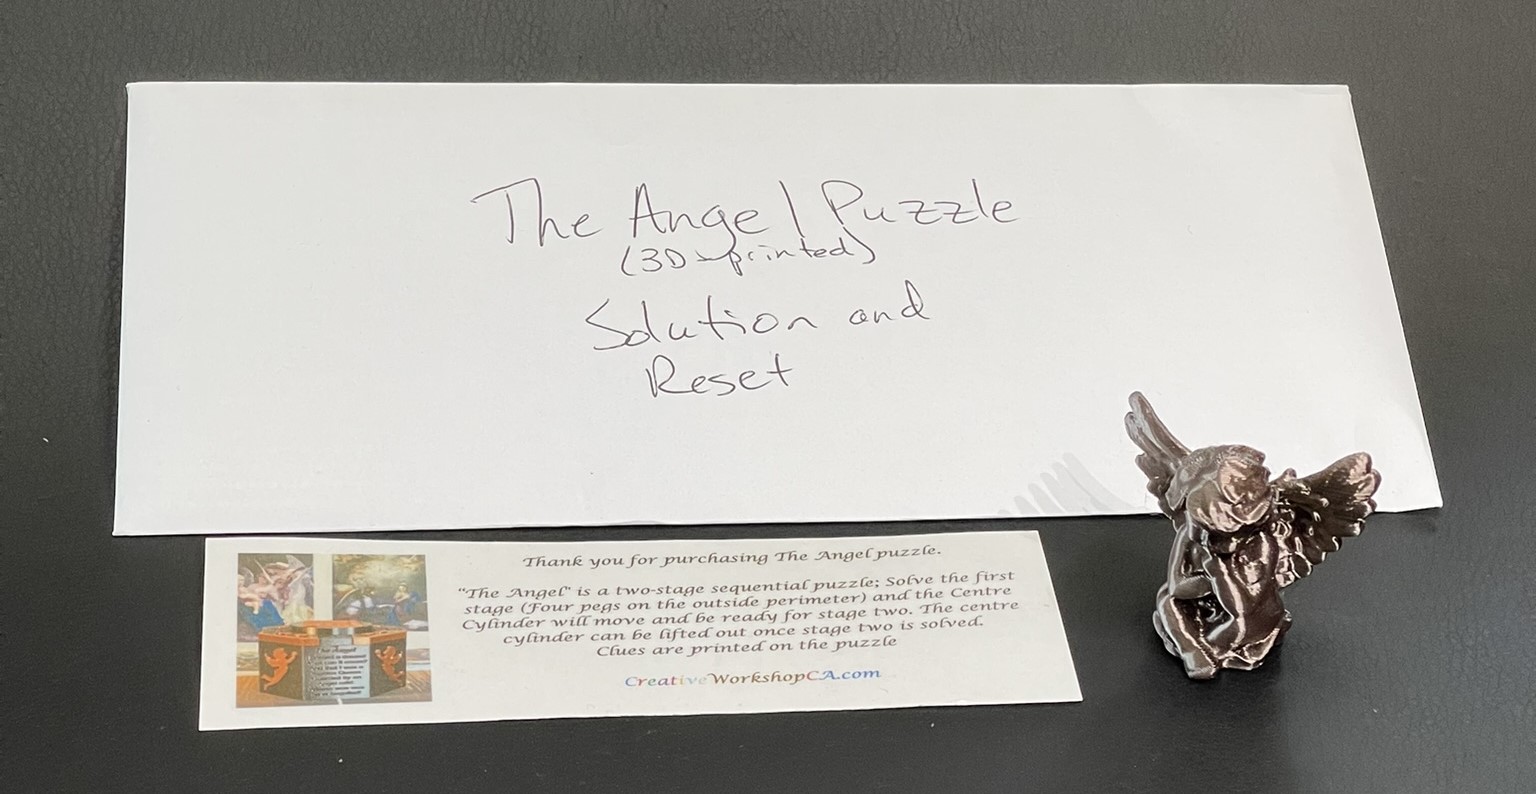 The Angel Puzzle
(3D-printed)
Solution and
Reset
Thank you for purchasing The Angel puzzle.
"The Angel" is a two-stage sequential puzzle; Solve the first
stage (Four pegs on the outside perimeter) and the Centre
Cylinder will move and be ready for stage two. The centre
cylinder can be lifted out once stage two is solved.
Clues are printed on the puzzle
CreativeWorkshopCA.com
The Angel